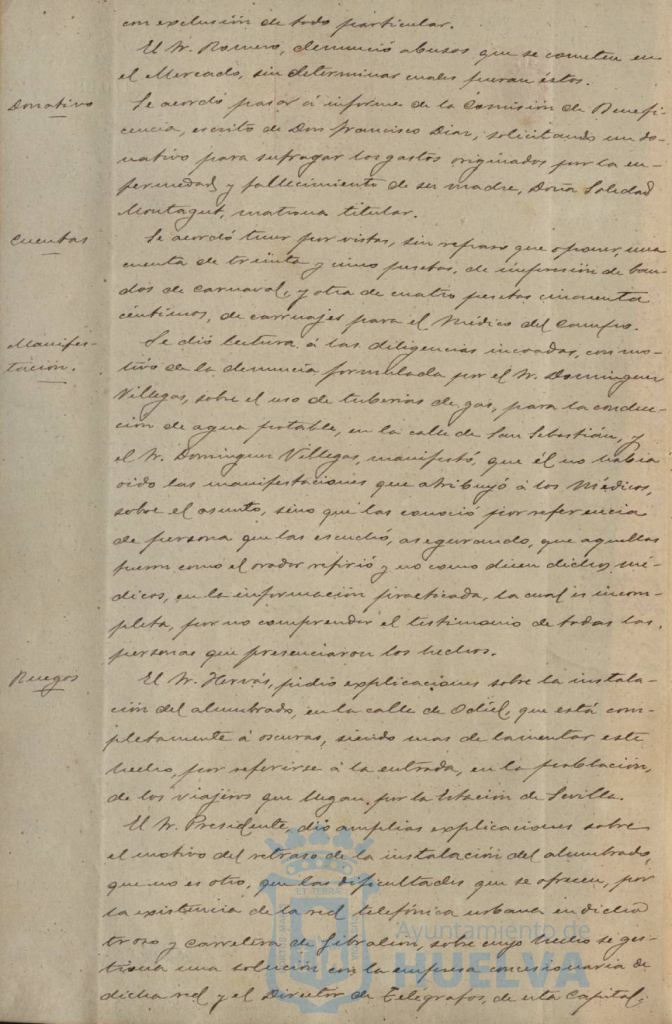 con exclusión de todo particular.
El Sr. Romero, denunció abusos que se cometen en
el Mercado, sin determinar cuales fueran éstos.
Donativo
Se acordó pasar á informe de la Comisión de Benefi-
cencia, escrito de Don Francisco Diaz, solicitando un do-
nativo para sufragar los gastos originados por la en-
fermedad y fallecimiento de su madre, Doña Soledad
Montagut, matrona titular.
Cuentas
Se acordó tener por vistas, sin reparo que oponer, una
cuenta de treinta y cinco pesetas, de impresión de ban-
dos de Carnaval, y otra de cuatro pesetas cincuenta
céntimos, de carruajes para el Médico del Campo.
Manifes-
tación.
Se dió lectura á las diligencias incoadas, con mo-
tivo de la denuncia formulada por el Sr. Dominguez
Villegas, sobre el uso de tuberias de gas, para la conduc-
ción de agua potable, en la calle de San Sebastián, y
el Sr. Dominguez Villegas, manifestó, que él no habia
oido las manifestaciones que atribuyó á los Médicos,
sobre el asunto, sino que las conoció por referencia
de persona que las escuchó, asegurando, que aquellas
fueron como el orador refirió y no como dicen dichos mé-
dicos, en la información practicada, la cual es incom-
pleta, por no comprender el testimonio de todas las
personas que presenciaron los hechos.
Ruegos
El Sr. Hervás, pidió explicaciones sobre la instala-
ción del alumbrado, en la calle de Odiel, que está com-
pletamente á oscuras, siendo mas de lamentar este
hecho, por referirse á la entrada, en la población,
de los viajeros que llegan por la Estación de Sevilla.
El Sr. Presidente, dió amplias explicaciones sobre
el motivo del retraso de la instalación del alumbrado,
que no es otro, que las dificultades que se ofrecen, por
la existencia de la red telefónica urbana en dicho
trozo y carretera de Gibraleon, sobre cuyo hecho se ges-
tiona una solución con la empresa concesionaria de
dicha red y el Director de Telégrafos, de esta Capital,
Ayuntamiento de
HUELVA